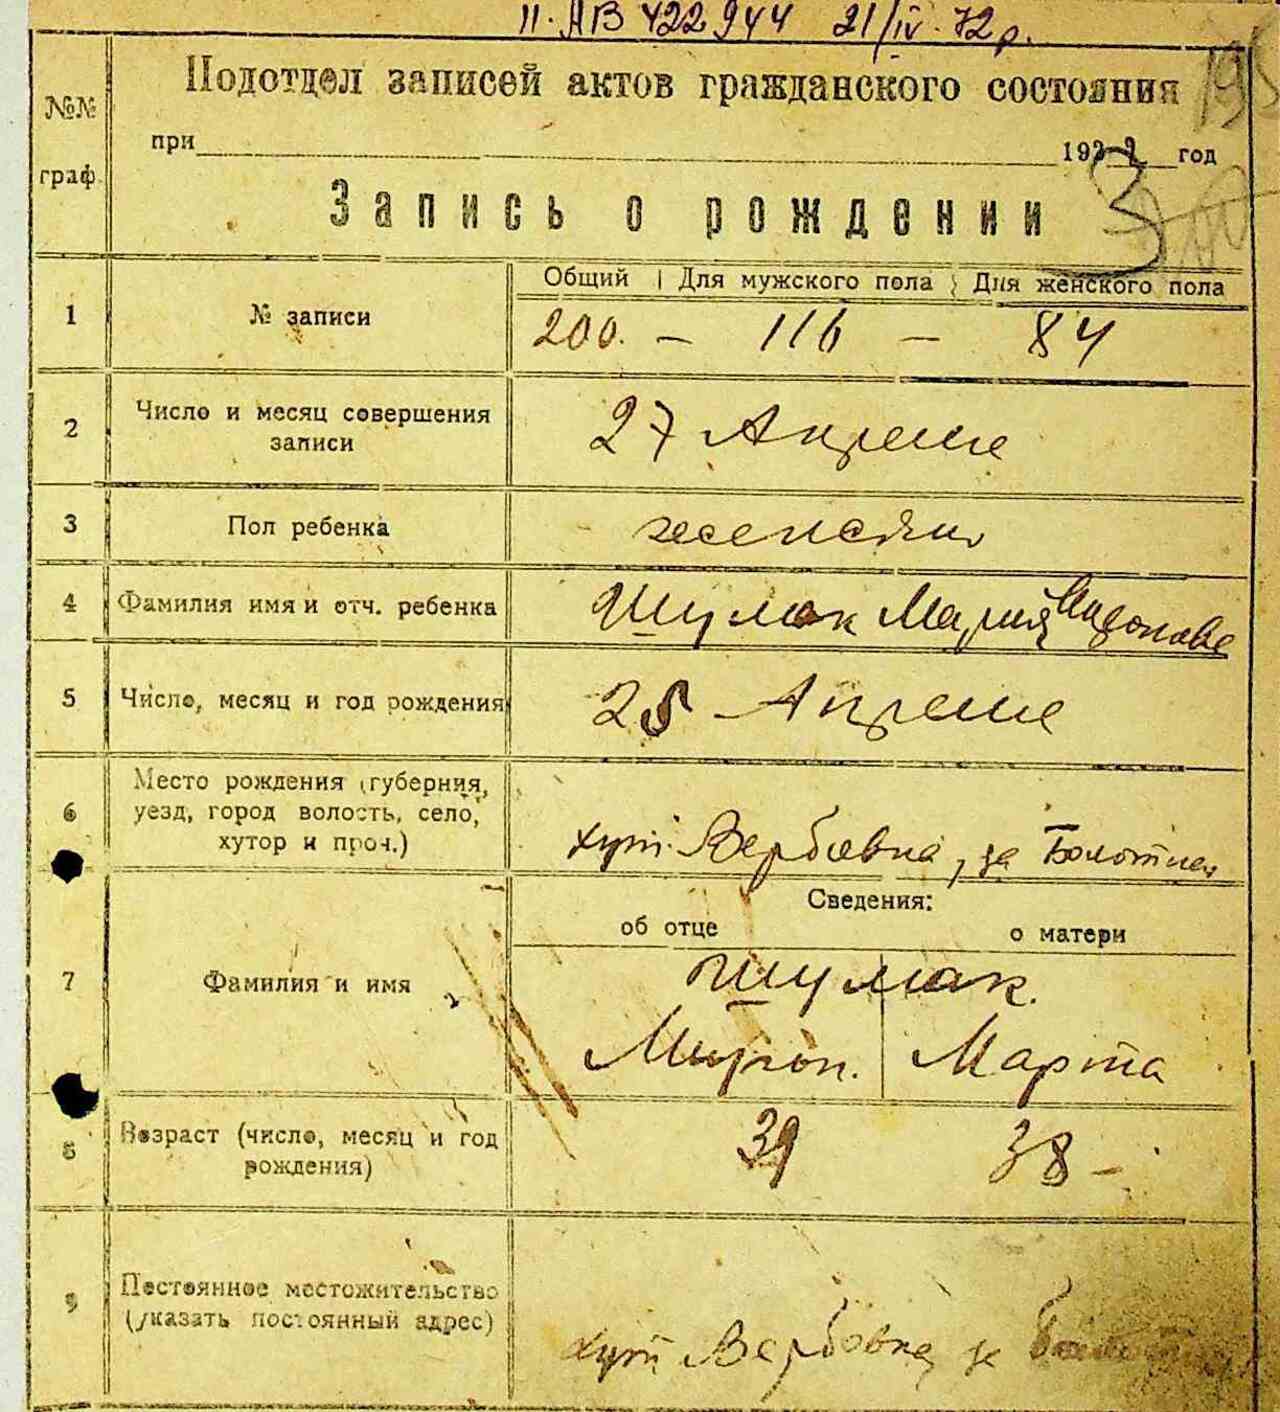 II. АВ 422944 21/IV. 72 р.
195
Подотдел записей актов гражданского состояния
№№ граф.
при 192 год
3
Запись о рождении
Общий Для мужского пола Для женского пола
1 № записи 200. – 116 – 84
2 Число и месяц совершения записи 27 Апреля
3 Пол ребенка женский
4 Фамилия имя и отч. ребенка Шумак Мария Мироновна
5 Число, месяц и год рождения 25 Апреля
6 Место рождения (губерния, уезд, город волость, село, хутор и проч.) хут. Вербовка, за Болотнею
Сведения:
об отце о матери
7 Фамилия и имя Шумак.
Мирон. Марта
8 Возраст (число, месяц и год рождения) 39 38 –
9 Постоянное местожительство (указать постоянный адрес) хут Вербовка за